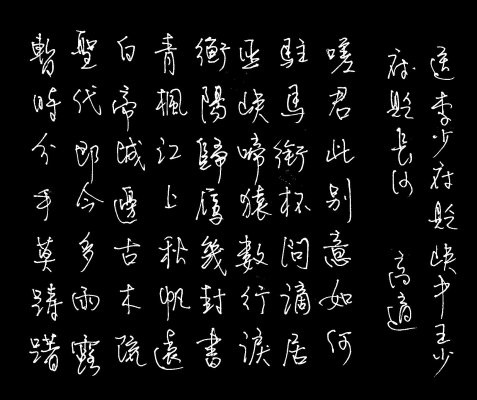 送李少府貶峽中王少
府貶長沙 高適
嗟君此别意如何
駐馬銜杯問謫居
巫峽啼猿數行淚
衡陽歸雁幾封書
青楓江上秋帆遠
白帝城邊古木疏
聖代即今多雨露
暫時分手莫躊躇